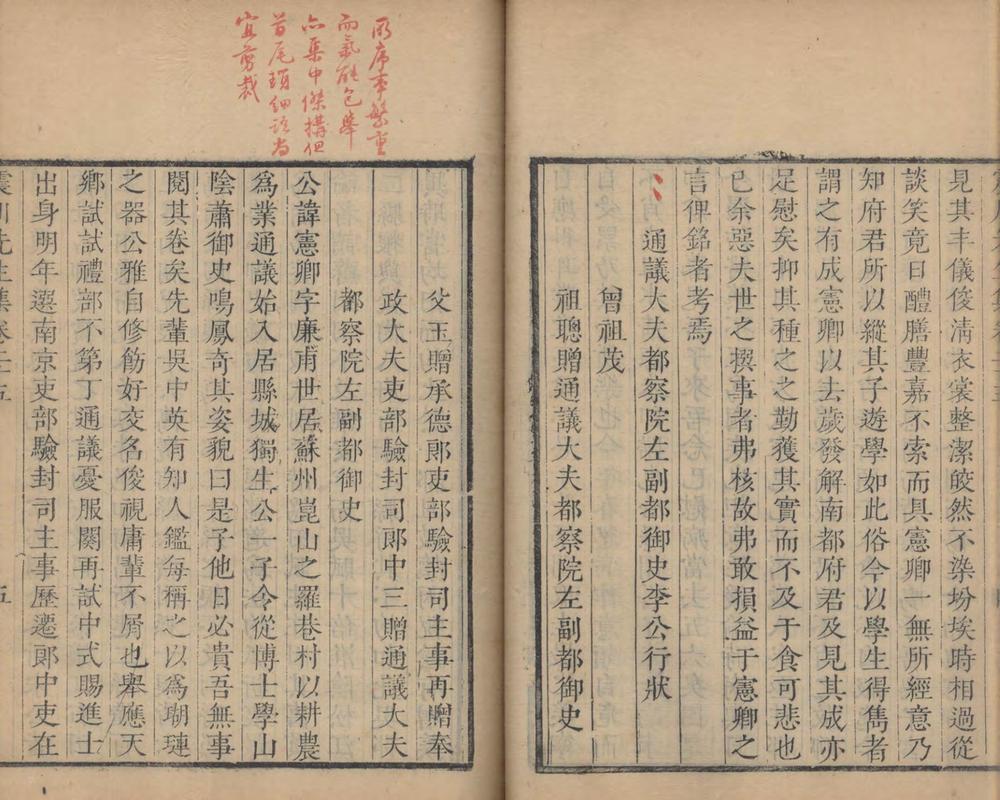 見其丰儀俊淸衣裳整潔皎然不染坋埃時相過從
談笑竟日醴膳豐嘉不索而具憲卿一無所經意乃
知府君所以縱其子遊學如此俗今以學生得雋者
謂之有成憲卿以去歲發解南都府君及見其成亦
足慰矣抑其種之之勤獲其實而不及于食可悲也
已余惡夫世之撰事者弗核故弗敢損益于憲卿之
言俾銘者考焉
通議大夫都察院左副都御史李公行狀
曾祖茂
祖聰贈通議大夫都察院左副都御史
父玉贈承德郞吏部驗封司主事再贈奉
政大夫吏部驗封司郞中三贈通議大夫
都察院左副都御史
公諱憲卿字廉甫世居蘇州崑山之羅巷村以耕農
爲業通議始入居縣城獨生公一子令從博士學山
陰蕭御史鳴鳳奇其姿貌曰是子他日必貴吾無事
閱其卷矣先輩吳中英有知人鑑每稱之以爲瑚璉
之器公雅自修飭好交名俊視庸輩不屑也舉應天
鄕試試禮部不第丁通議憂服闋再試中式賜進士
出身明年選南京吏部驗封司主事歷遷郞中吏在
震川先生集卷二十五
五
序事繁重
而氣能包舉
亦集中傑搆但
首尾瑣細語尚
宜剪裁